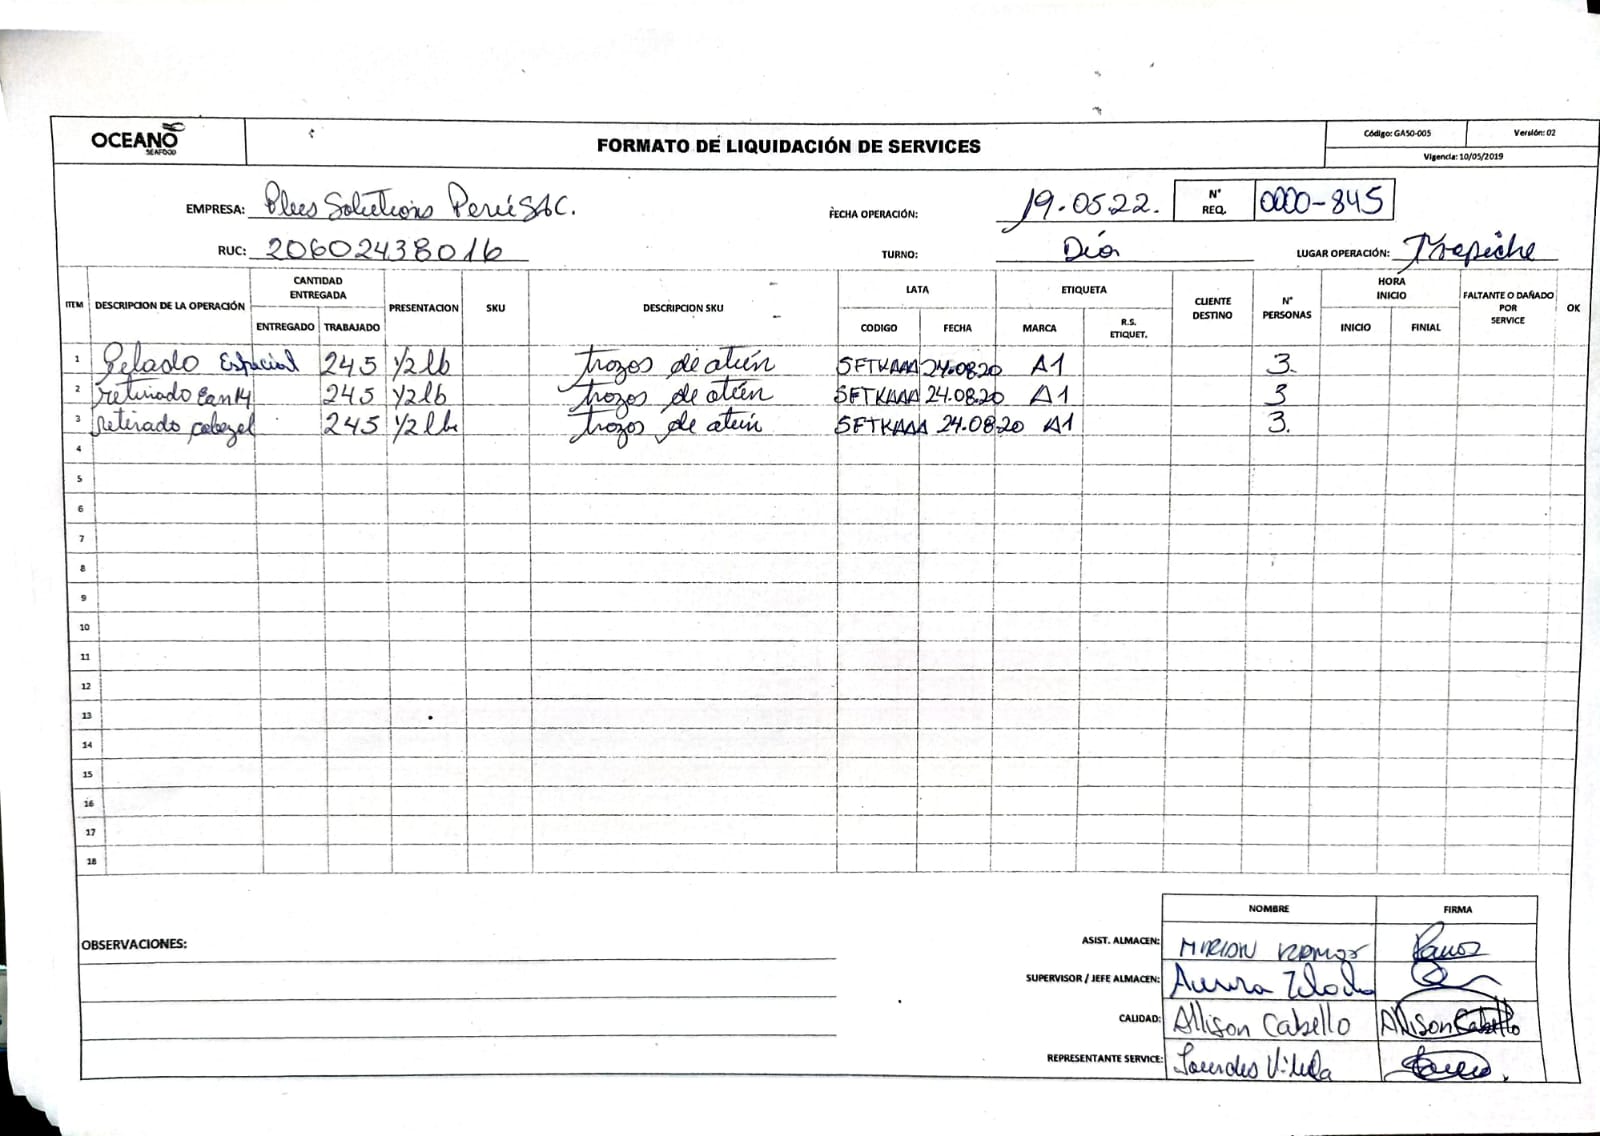 OCEANO
SEAFOOD
FORMATO DE LIQUIDACIÓN DE SERVICES
Código: GA50-005 Versión: 02
Vigencia: 10/05/2019
EMPRESA: Solutions Perú SAC. FECHA OPERACIÓN: 19.05.22. N° REQ. 0000-845
RUC: 20602438016 TURNO: Día LUGAR OPERACIÓN: Trapiche
ITEM DESCRIPCION DE LA OPERACIÓN CANTIDAD ENTREGADA ENTREGADO TRABAJADO PRESENTACION SKU DESCRIPCION SKU LATA CODIGO FECHA ETIQUETA MARCA R.S. ETIQUET. CLIENTE DESTINO N° PERSONAS HORA INICIO INICIO FINIAL FALTANTE O DAÑADO POR SERVICE OK
1 Pelado Especial 245 1/2 lb trozos de atún SFTKAAA 24.08.20 A1 3.
2 retirado Ean14 245 1/2 lb trozos de atún SFTKAAA 24.08.20 A1 3
3 retirado cabezal 245 1/2 lb trozos de atún SFTKAAA 24.08.20 A1 3.
4
5
6
7
8
9
10
11
12
13
14
15
16
17
18
NOMBRE FIRMA
OBSERVACIONES:
ASIST. ALMACEN: MIRIAN RAMOS Ramos
SUPERVISOR / JEFE ALMACEN:
CALIDAD: Allison Cabello Allison Cabello
REPRESENTANTE SERVICE: Lourdes Vilela